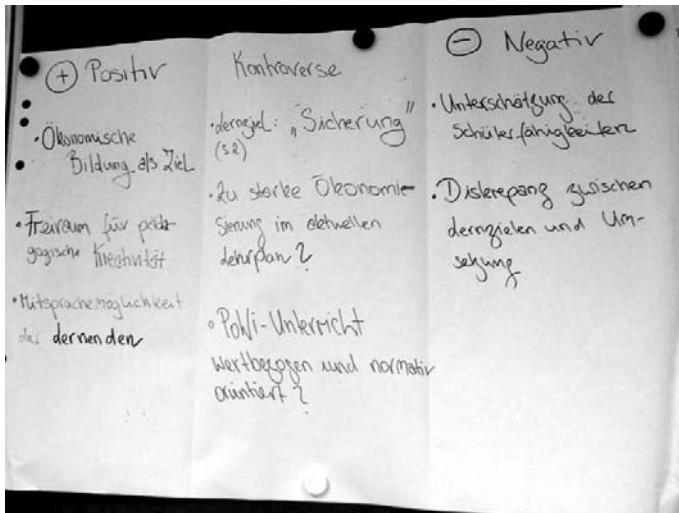 ⊕ Positiv
• Ökonomische
Bildung als Ziel
• Freiraum für päda-
gogische Kreativität
• Mitsprachemöglichkeit
der Lernenden
Kontroverse
• Lernziel: „Sicherung"
(S2)
• Zu starke Ökonomie-
sierung im aktuellen
Lehrplan?
• PoWi-Unterricht
wertbezogen und normativ
orientiert?
⊖ Negativ
• Unterschätzung der
Schülerfähigkeiten
• Diskrepanz zwischen
Lernzielen und Um-
setzung